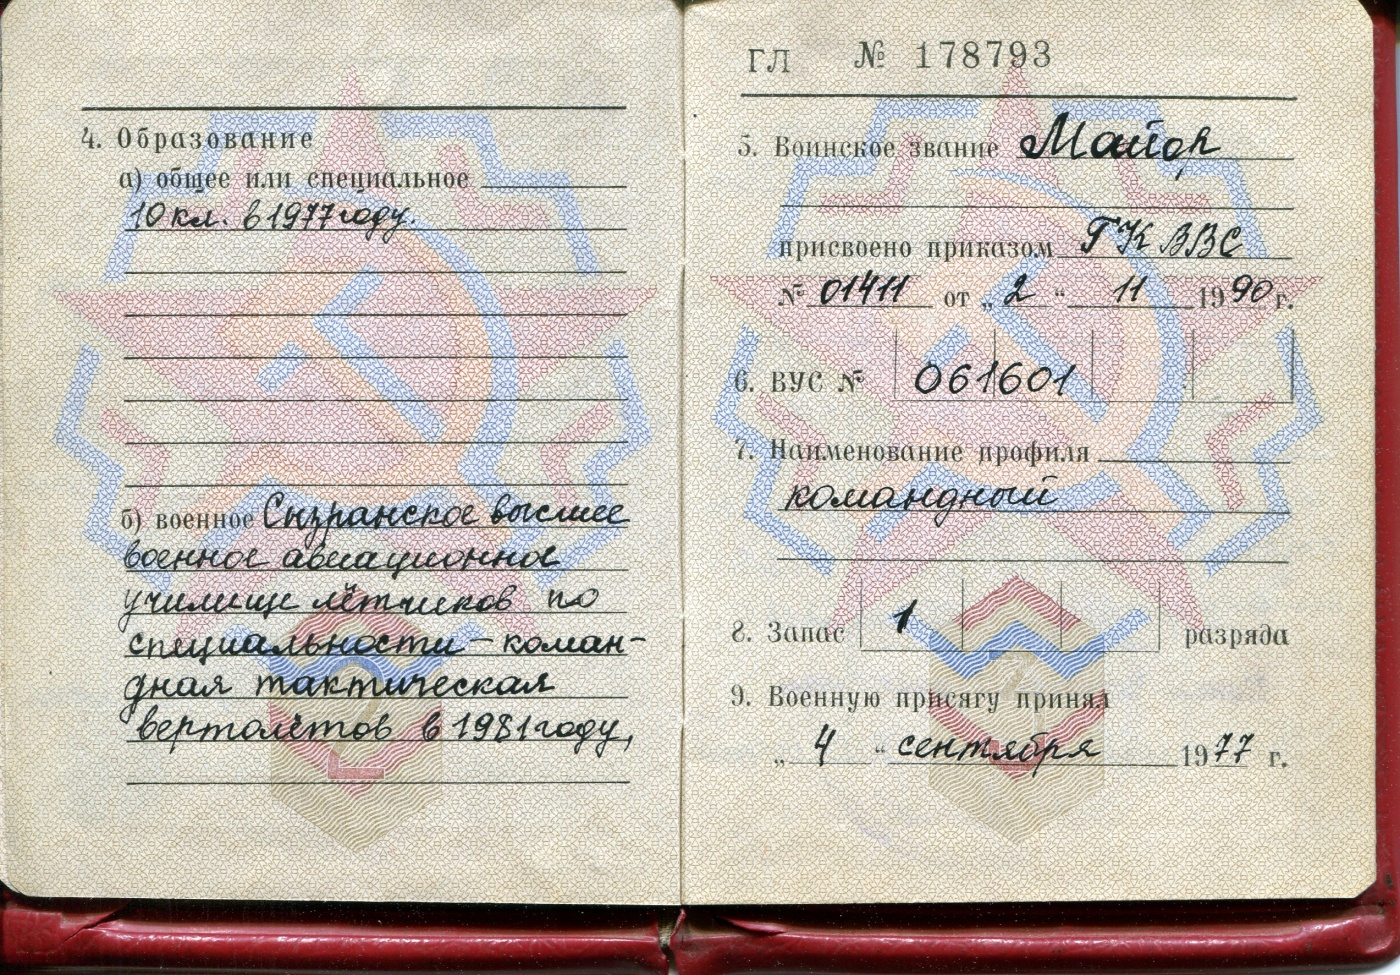 4. Образование
а) общее или специальное
10 кл. в 1977 году.
б) военное Сызранское высшее
военное авиационное
училище лётчиков по
специальности – коман-
дная тактическая
вертолётов в 1981 году,
ГЛ № 178793
5. Воинское звание Майор
присвоено приказом ГК ВВС
№ 01411 от „2“ 11 1990 г.
6. ВУС № 061601
7. Наименование профиля
командный
8. Запас 1 разряда
9. Военную присягу принял
„4“ сентября 1977 г.